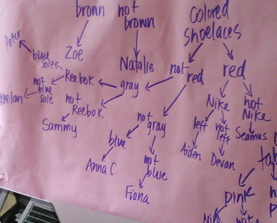 brown
not
brown
colored
shoelaces
Peter
blue
sole
Zoe
Natalie
not
red
red
Reebok
gray
not
blue
sole
not
Reebok
Nike
not
Nike
Sammy
not
gray
left
not
left
Seamus
blue
Aiden
Devan
Anna C
not
blue
Fiona
pink